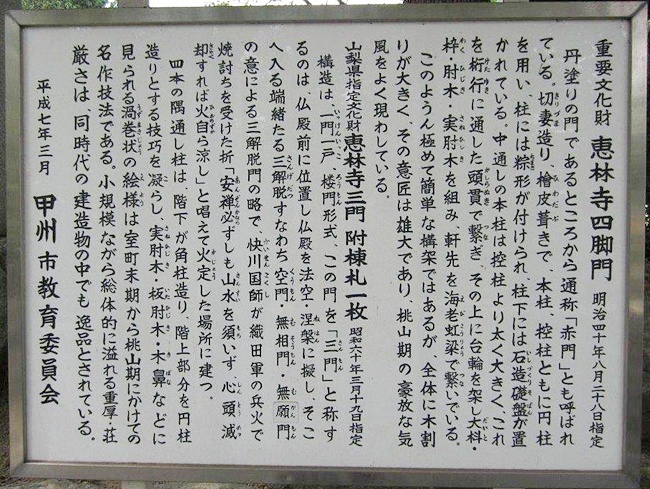 重要文化財　恵林寺四脚門　明治四十年八月二十八日指定
丹塗りの門であるところから通称「赤門」とも呼ばれ
ている。切妻造り、檜皮葺きで、本柱、控柱ともに円柱
を用い、柱には粽形が付けられ、柱下には石造礎盤が置
かれている。中通しの本柱は控柱より太く大きく、これ
を桁行に通した頭貫で繋ぎ、その上に台輪を架し大斗・
枠・肘木・実肘木を組み、軒先を海老虹梁で繋いでいる。
このようん極めて簡単な構架ではあるが、全体に木割
りが大きく、その意匠は雄大であり、桃山期の豪放な気
風をよく現わしている。
山梨県指定文化財　恵林寺三門　附棟札一枚　昭和六十年三月十九日指定
構造は、一門一戸、楼門形式、この門を「三門」と称す
るのは、仏殿前に位置し仏殿を法空・涅槃に擬し、そこ
へ入る端緒たる三解脱すなわち空門・無相門・無願門
の意による三解脱門の略で、快川国師が織田軍の兵火で
焼討ちを受けた折「安禅必ずしも山水を須いず、心頭滅
却すれば火自ら涼し」と唱えて火定した場所に建つ。
四本の隅通し柱は、階下が角柱造り、階上部分を円柱
造りとする技巧を凝らし、実肘木・板肘木・木鼻などに
見られる渦巻状の絵様は室町末期から桃山期にかけての
名作技法である。小規模ながら総体的に溢れる重厚・荘
厳さは、同時代の建造物の中でも逸品とされている。
平成七年三月　甲州市教育委員会